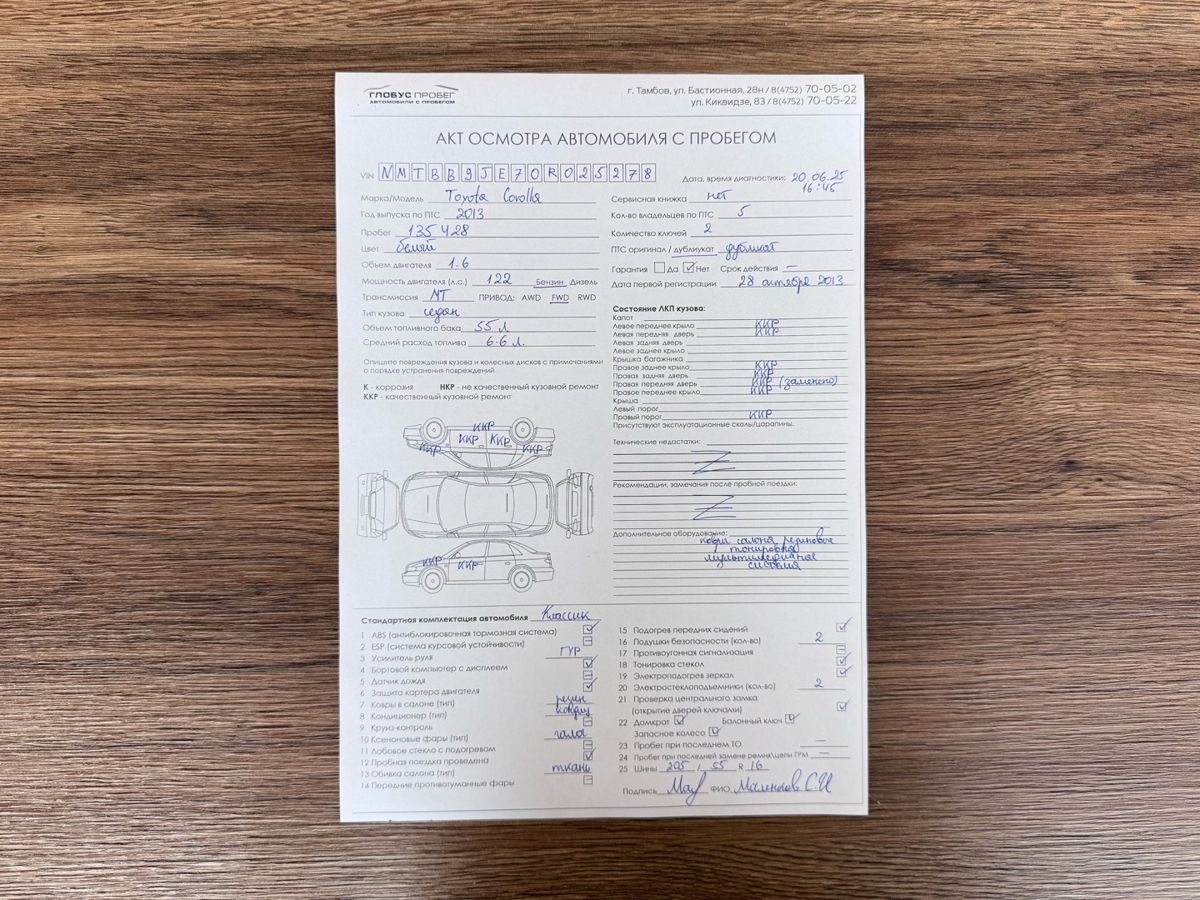 ГЛОБУС ПРОБЕГ
АВТОМОБИЛИ С ПРОБЕГОМ
г. Тамбов, ул. Бастионная, 28н / 8(4752) 70-05-02
ул. Киквидзе, 83 / 8(4752) 70-05-22
АКТ ОСМОТРА АВТОМОБИЛЯ С ПРОБЕГОМ
VIN NMTBB9JE70R025278
Дата, время диагностики: 20.06.25
16:45
Марка/Модель Toyota Corolla
Год выпуска по ПТС 2013
Пробег 135 428
Цвет белый
Объем двигателя 1.6
Мощность двигателя (л.с.) 122 Бензин Дизель
Трансмиссия МТ ПРИВОД: AWD FWD RWD
Тип кузова седан
Объем топливного бака 55 л
Средний расход топлива 6.6 л.
Сервисная книжка нет
Кол-во владельцев по ПТС 5
Количество ключей 2
ПТС оригинал / дубликат дубликат
Гарантия Да ✓ Нет Срок действия —
Дата первой регистрации 28 октября 2013
Опишите повреждения кузова и колесных дисков с примечаниями
о порядке устранения повреждений
К - коррозия НКР - не качественный кузовной ремонт
ККР - качественный кузовной ремонт
ККР
ККР ККР
ККР ККР
ККР ККР
Состояние ЛКП кузова:
Капот
Левое переднее крыло ККР
Левая передняя дверь ККР
Левая задняя дверь
Левое заднее крыло
Крышка багажника
Правое заднее крыло ККР
Правая задняя дверь ККР
Правая передняя дверь ККР (заменено)
Правое переднее крыло ККР
Крыша
Левый порог
Правый порог ККР
Присутствуют эксплуатационные сколы/царапины.
Технические недостатки:
Рекомендации, замечания после пробной поездки:
Дополнительное оборудование:
ковры салона резиновые
тонировка
мультимедийная
система
Стандартная комплектация автомобиля Классик
1 ABS (антиблокировочная тормозная система) ✓
2 ESP (система курсовой устойчивости) —
3 Усилитель руля ГУР
4 Бортовой компьютер с дисплеем ✓
5 Датчик дождя —
6 Защита картера двигателя ✓
7 Ковры в салоне (тип) резин
8 Кондиционер (тип) кондиц
9 Круиз-контроль —
10 Ксеноновые фары (тип) гало
11 Лобовое стекло с подогревом —
12 Пробная поездка проведена ✓
13 Обивка салона (тип) ткань
14 Передние противотуманные фары —
15 Подогрев передних сидений ✓
16 Подушки безопасности (кол-во) 2
17 Противоугонная сигнализация —
18 Тонировка стекол ✓
19 Электроподогрев зеркал ✓
20 Электростеклоподъемники (кол-во) 2
21 Проверка центрального замка
(открытие дверей ключами) ✓
22 Домкрат ✓ Балонный ключ ✓
Запасное колесо ✓
23 Пробег при последнем ТО —
24 Пробег при последней замене ремня/цепи ГРМ —
25 Шины 205 / 55 R 16
Подпись ФИО С.И